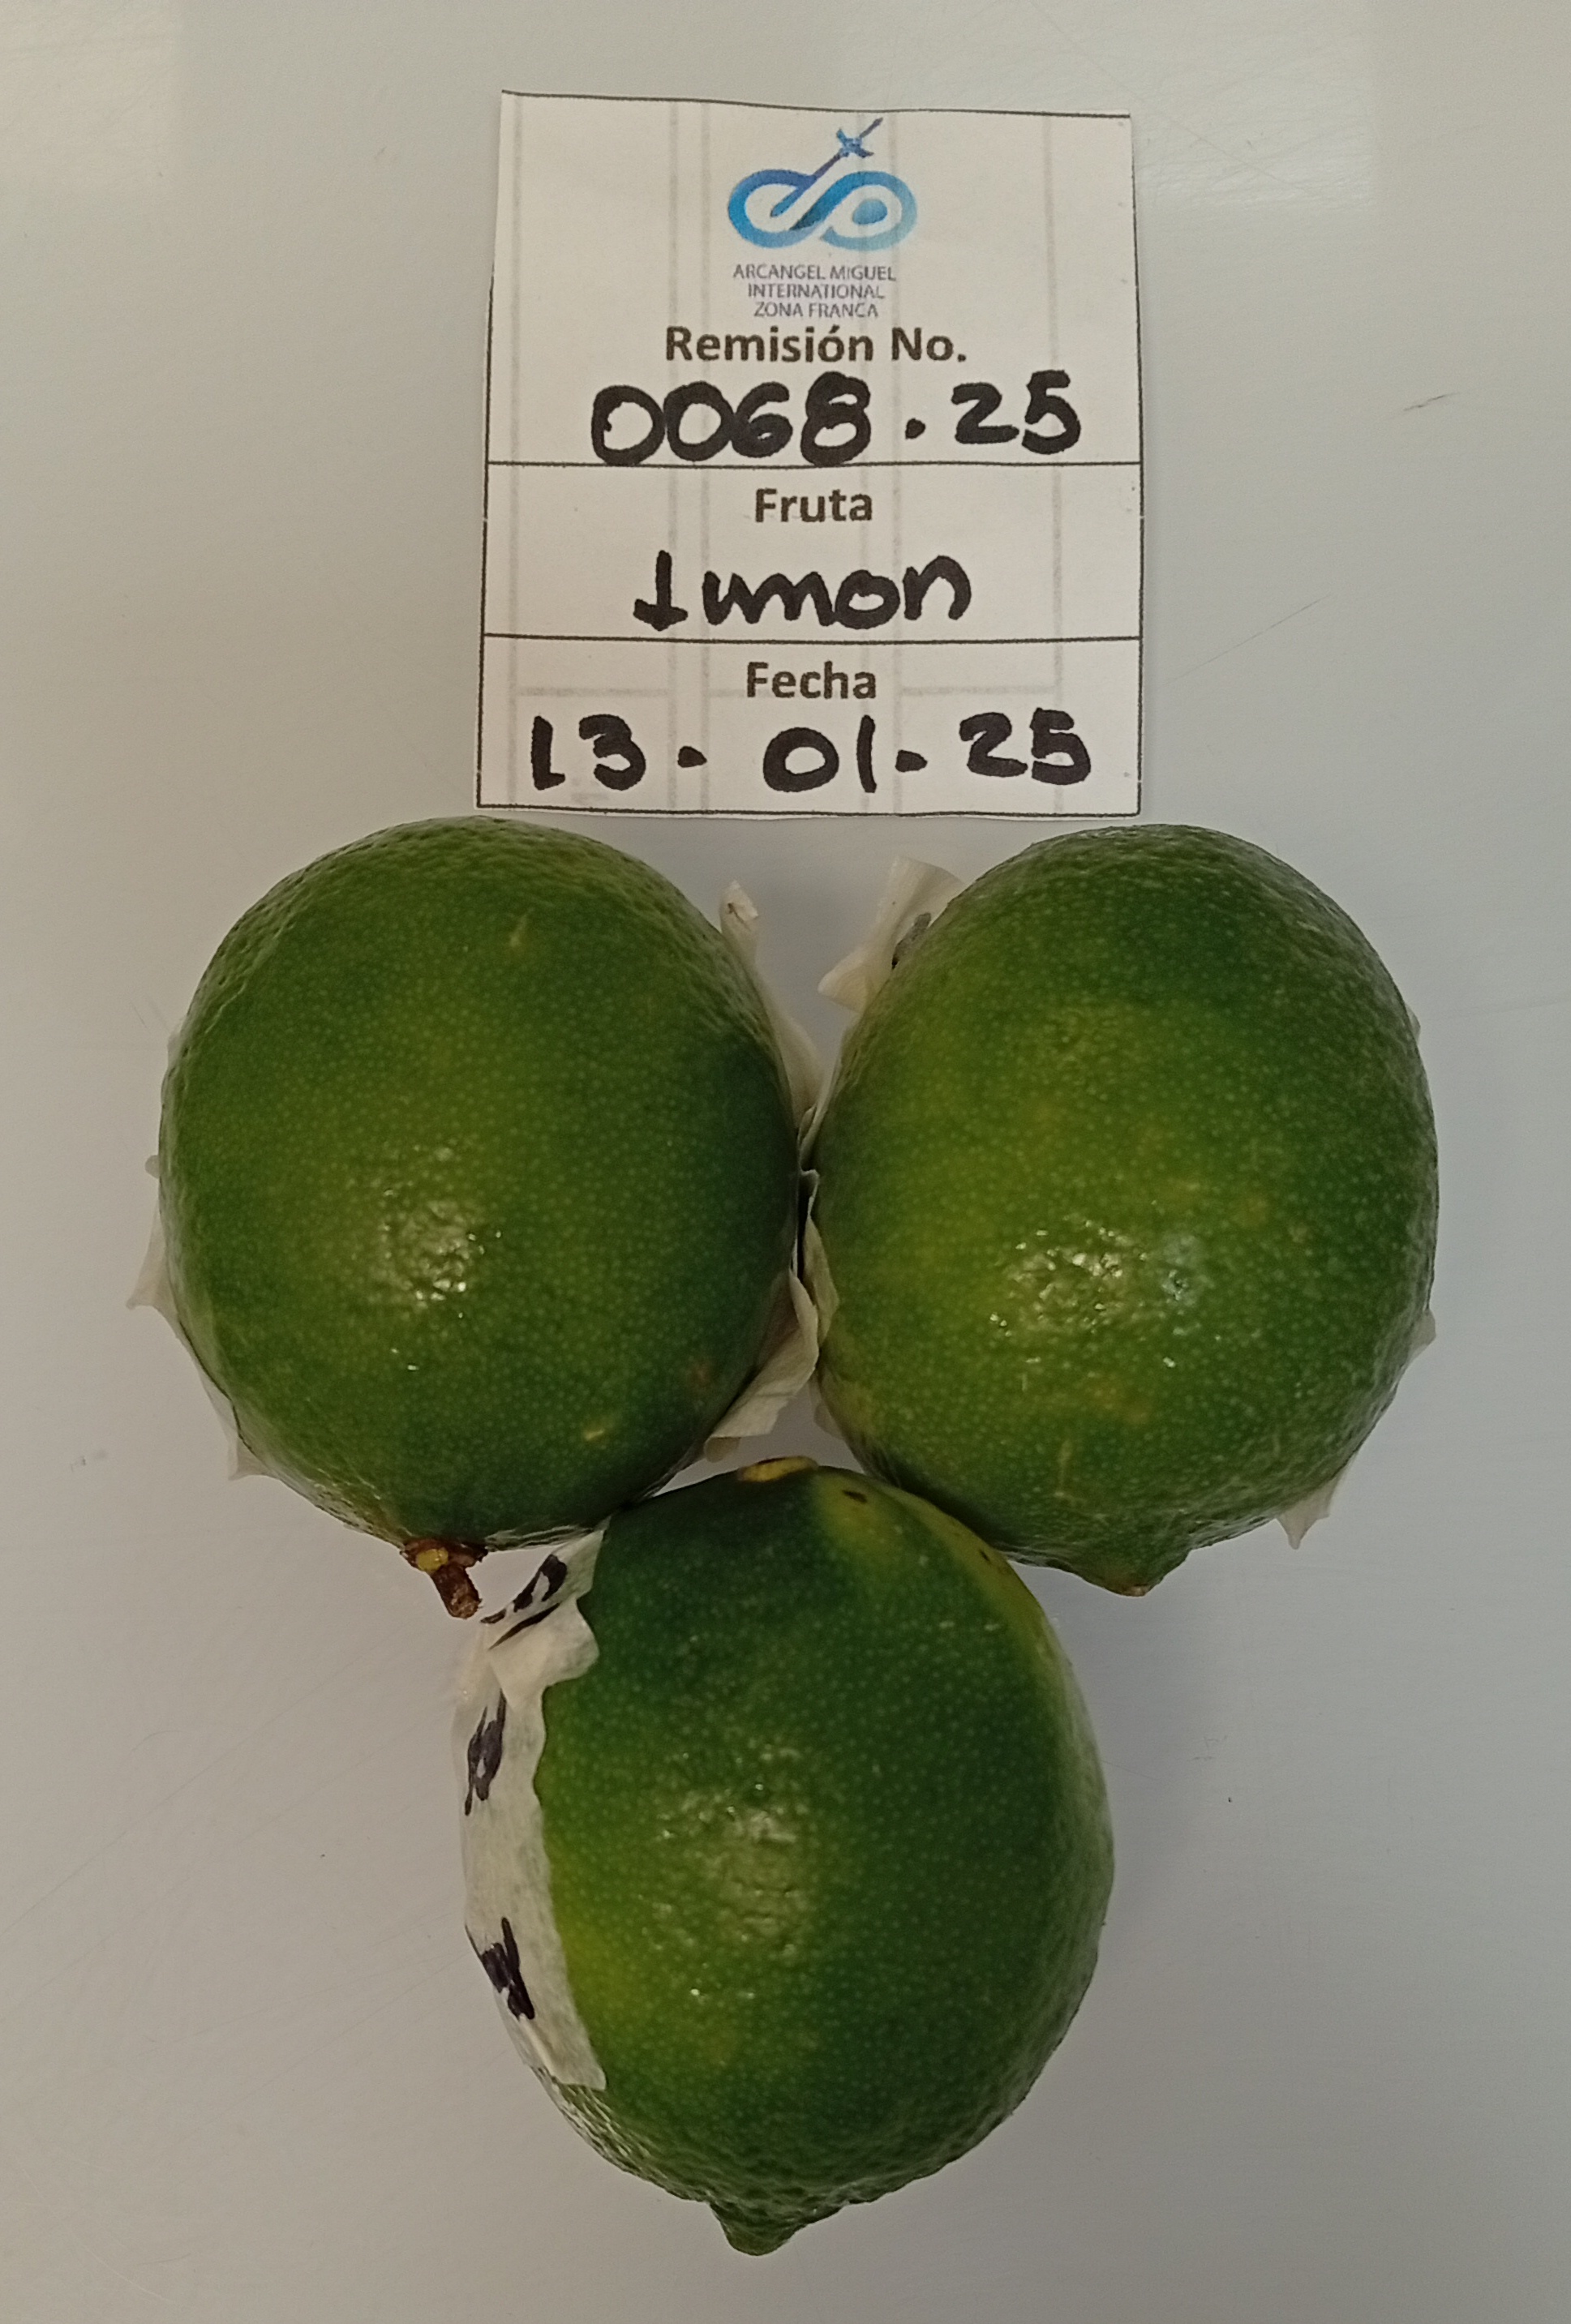 ARCANGEL MIGUEL
INTERNATIONAL
ZONA FRANCA
Remisión No.
0068.25
Fruta
Limon
Fecha
13.01.25